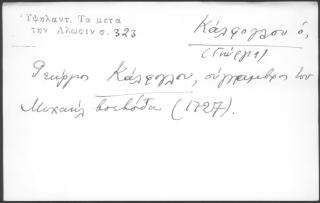 Ὑψηλαντ. Τα μετα
την Αλωσιν σ. 323
Κάλφογλου ὁ,
(Γιώργης)
Γεώργιος Κάλφογλου, σύγγαμβρος του
Μιχαήλ βοεβόδα (1727).